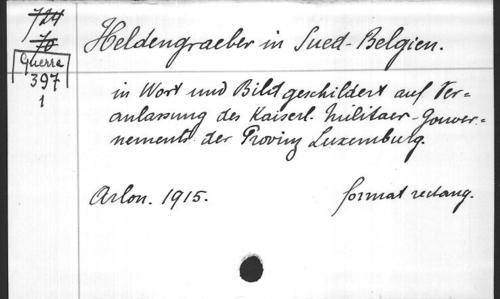 724
70
Guerra
397
1
Heldengraeber in Sued-Belgien.
in Wort und Bild geschildert auf Ver=
anlassung des Kaiserl. Militaer-Gouver-
nements der Provinz Luxemburg.
Arlon. 1915.
format rectang.